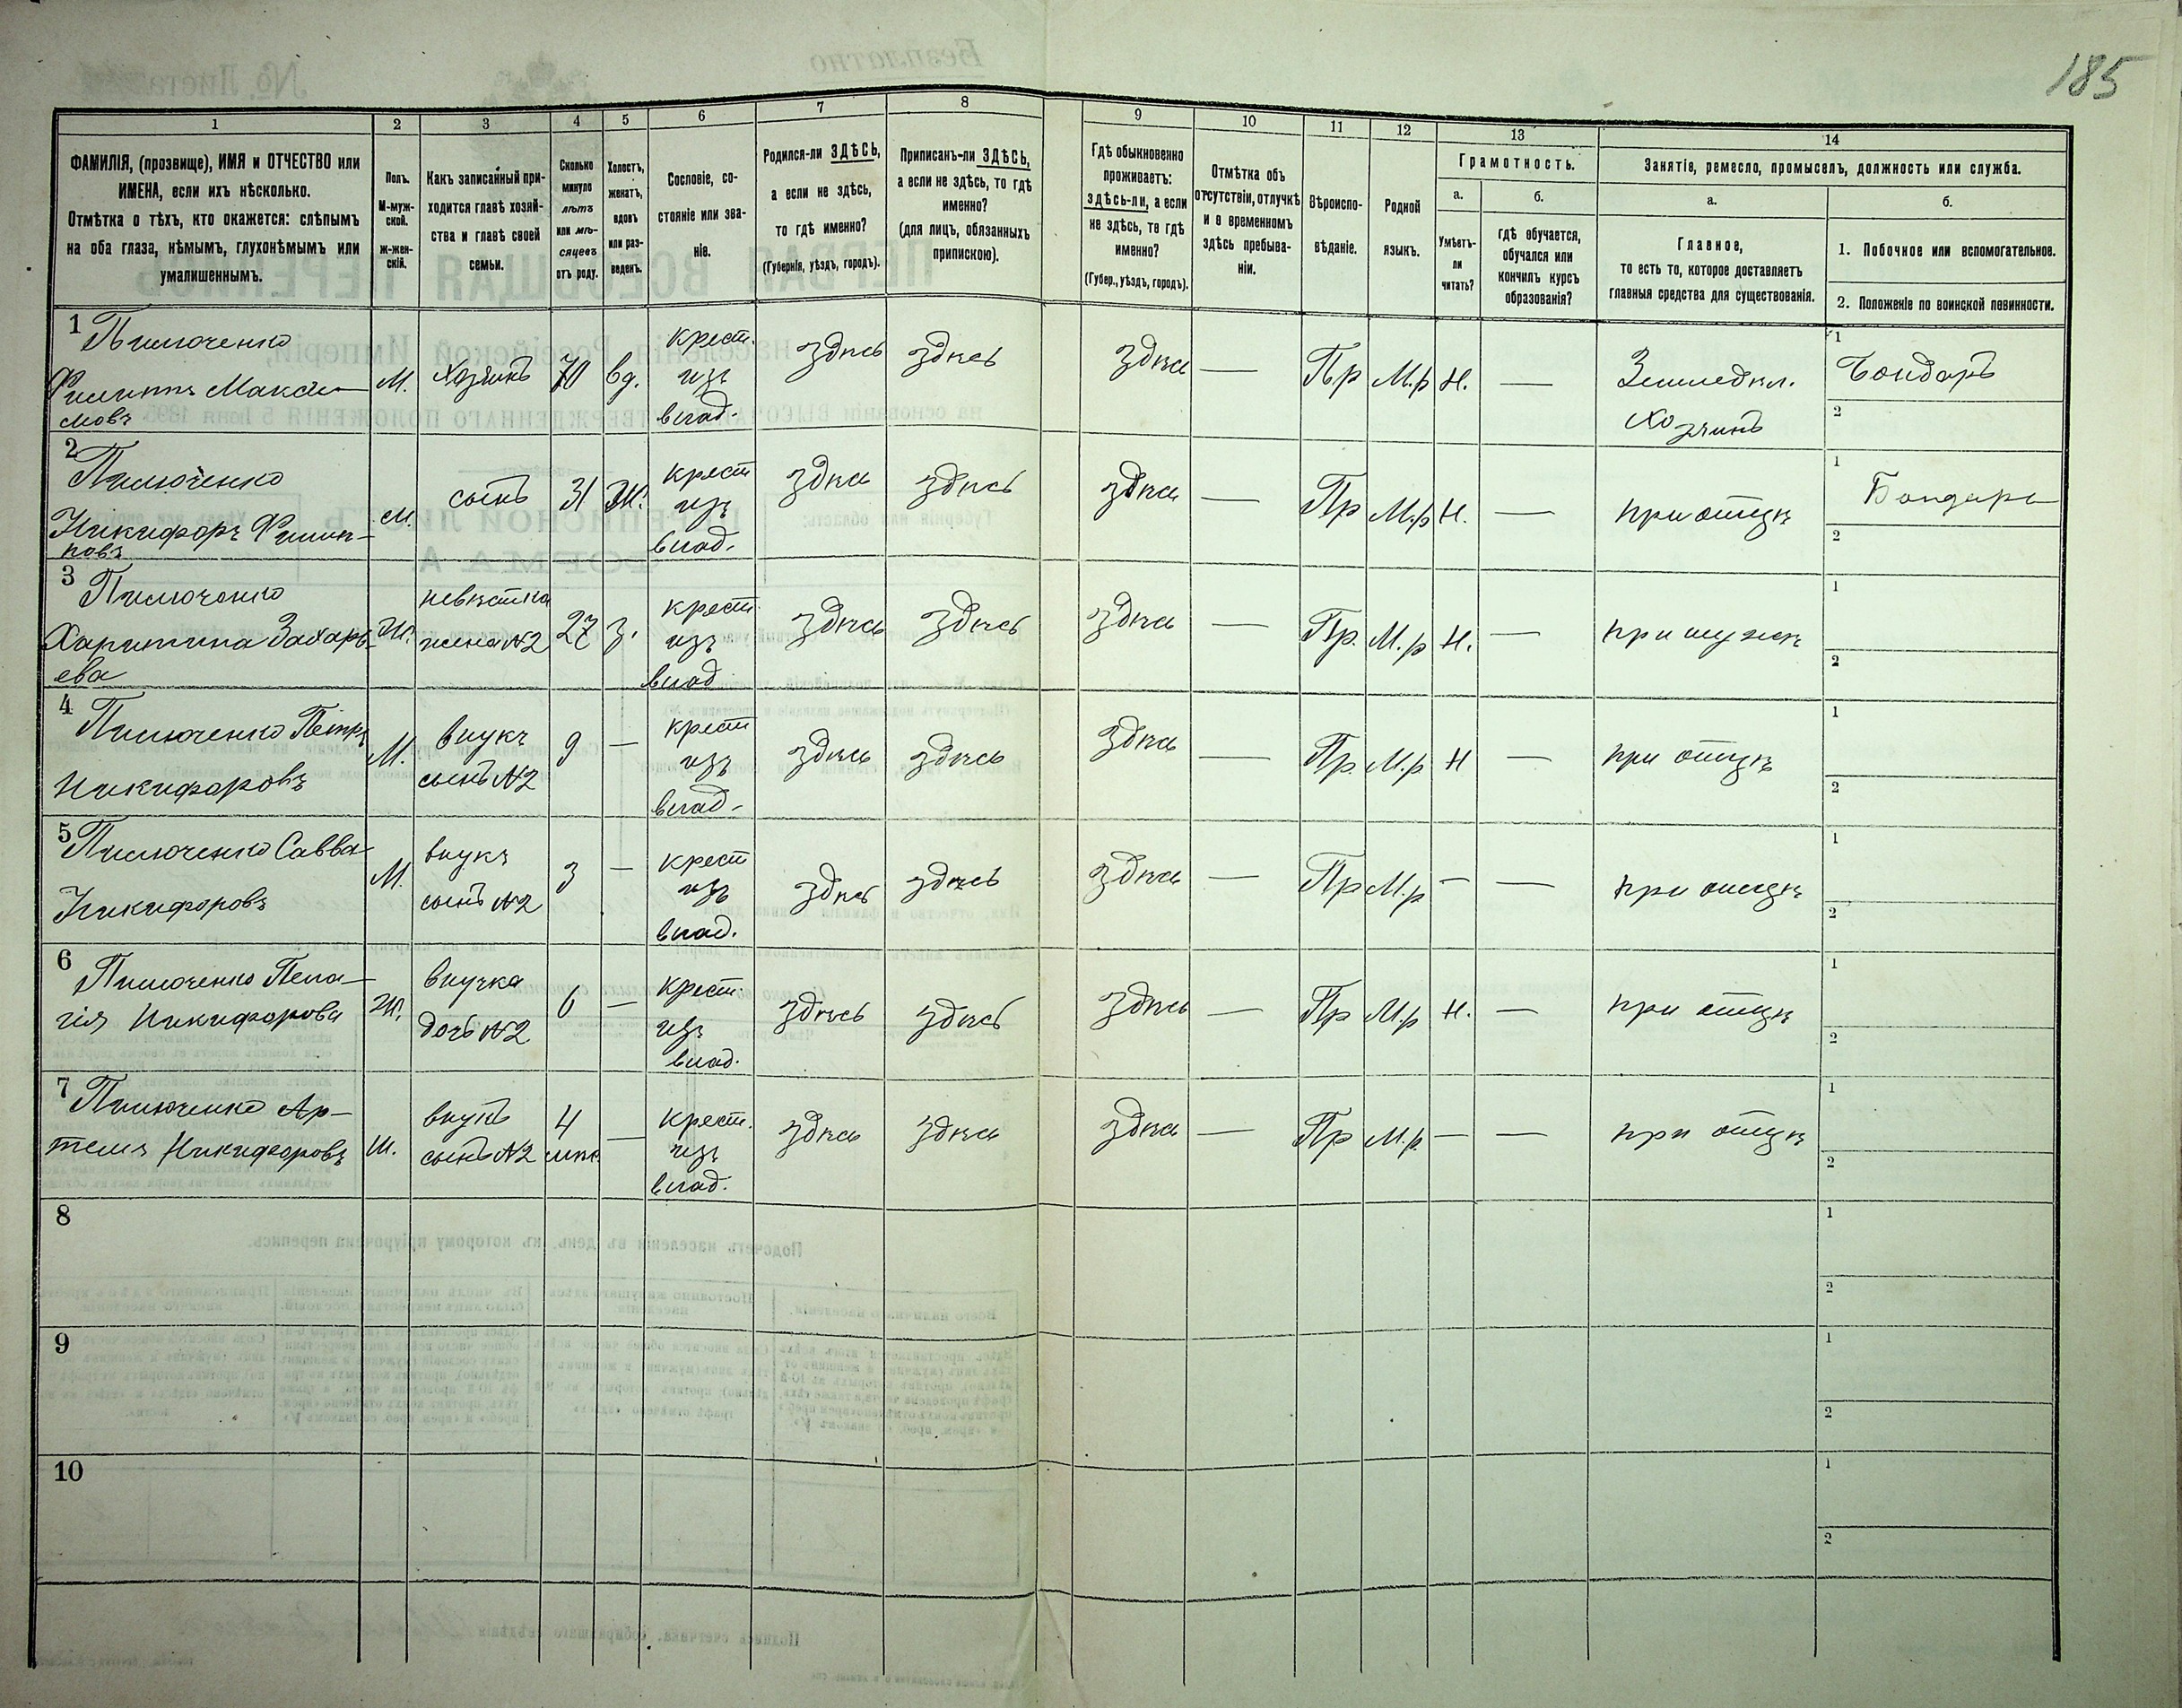 185
1
2
3
4
5
6
7
8
9
10
11
12
13
14
ФАМИЛІЯ, (прозвище), ИМЯ и ОТЧЕСТВО или
ИМЕНА, если ихъ нѣсколько.
Отмѣтка о тѣхъ, кто окажется: слѣпымъ
на оба глаза, нѣмымъ, глухонѣмымъ или
умалишеннымъ.
Полъ.
М-муж-
ской.
ж-жен-
скій.
Какъ записанный при-
ходится главѣ хозяй-
ства и главѣ своей
семьи.
Сколько
минуло
лѣтъ
или мѣ-
сяцевъ
отъ роду.
Холостъ,
женатъ,
вдовъ
или раз-
веденъ.
Сословіе, со-
стояніе или зва-
ніе.
Родился-ли ЗДѢСЬ,
а если не здѣсь,
то гдѣ именно?
(Губернія, уѣздъ, городъ).
Приписанъ-ли ЗДѢСЬ,
а если не здѣсь, то гдѣ
именно?
(для лицъ, обязанныхъ
припискою).
Гдѣ обыкновенно
проживаетъ:
ЗДѢСЬ-ли, а если
не здѣсь, то гдѣ
именно?
(Губер., уѣздъ, городъ).
Отмѣтка объ
отсутствіи, отлучкѣ
и о временномъ
здѣсь пребыва-
ніи.
Вѣроиспо-
вѣданіе.
Родной
языкъ.
Грамотность.
а.
Умѣетъ-
ли
читать?
б.
гдѣ обучается,
обучался или
кончилъ курсъ
образованія?
Занятіе, ремесло, промыселъ, должность или служба.
а.
Главное,
то есть то, которое доставляетъ
главныя средства для существованія.
б.
1. Побочное или вспомогательное.
2. Положеніе по воинской повинности.
1 Пилюченко
Филиппъ Макси-
мовъ
М. Хозяинъ 70 вд. крест. изъ влад. здѣсь здѣсь здѣсь — Пр М.р Н. — Земледѣл. Хозяинъ 1 Бондарь 2
2 Пилюченко
Никифоръ Филип-
повъ
М. сынъ 31 Ж. крест изъ влад. здѣсь здѣсь здѣсь — Пр М.р Н. — при отцѣ 1 Бондарь 2
3 Пилюченко
Харитина Захарь-
ева
Ж. невѣстка жена №2 27 з. крест. изъ влад здѣсь здѣсь здѣсь — Пр. М.р Н. — при мужѣ 1 2
4 Пилюченко Пётръ
Никифоровъ
М. внукъ сынъ №2 9 — крест изъ влад. здѣсь здѣсь здѣсь — Пр. М.р Н — при отцѣ 1 2
5 Пилюченко Савва
Никифоровъ
М. внукъ сынъ №2 3 — крест изъ влад. здѣсь здѣсь здѣсь — Пр М.р — — при отцѣ 1 2
6 Пилюченко Пела-
гія Никифорова
Ж. внучка дочь №2 6 — крест. изъ влад. здѣсь здѣсь здѣсь — Пр М.р Н. — при отцѣ 1 2
7 Пилюченко Ар-
темъ Никифоровъ
М. внукъ сынъ №2 4 мѣс. — крест. изъ влад. здѣсь здѣсь здѣсь — Пр М.р. — — при отцѣ 1 2
8 1 2
9 1 2
10 1 2